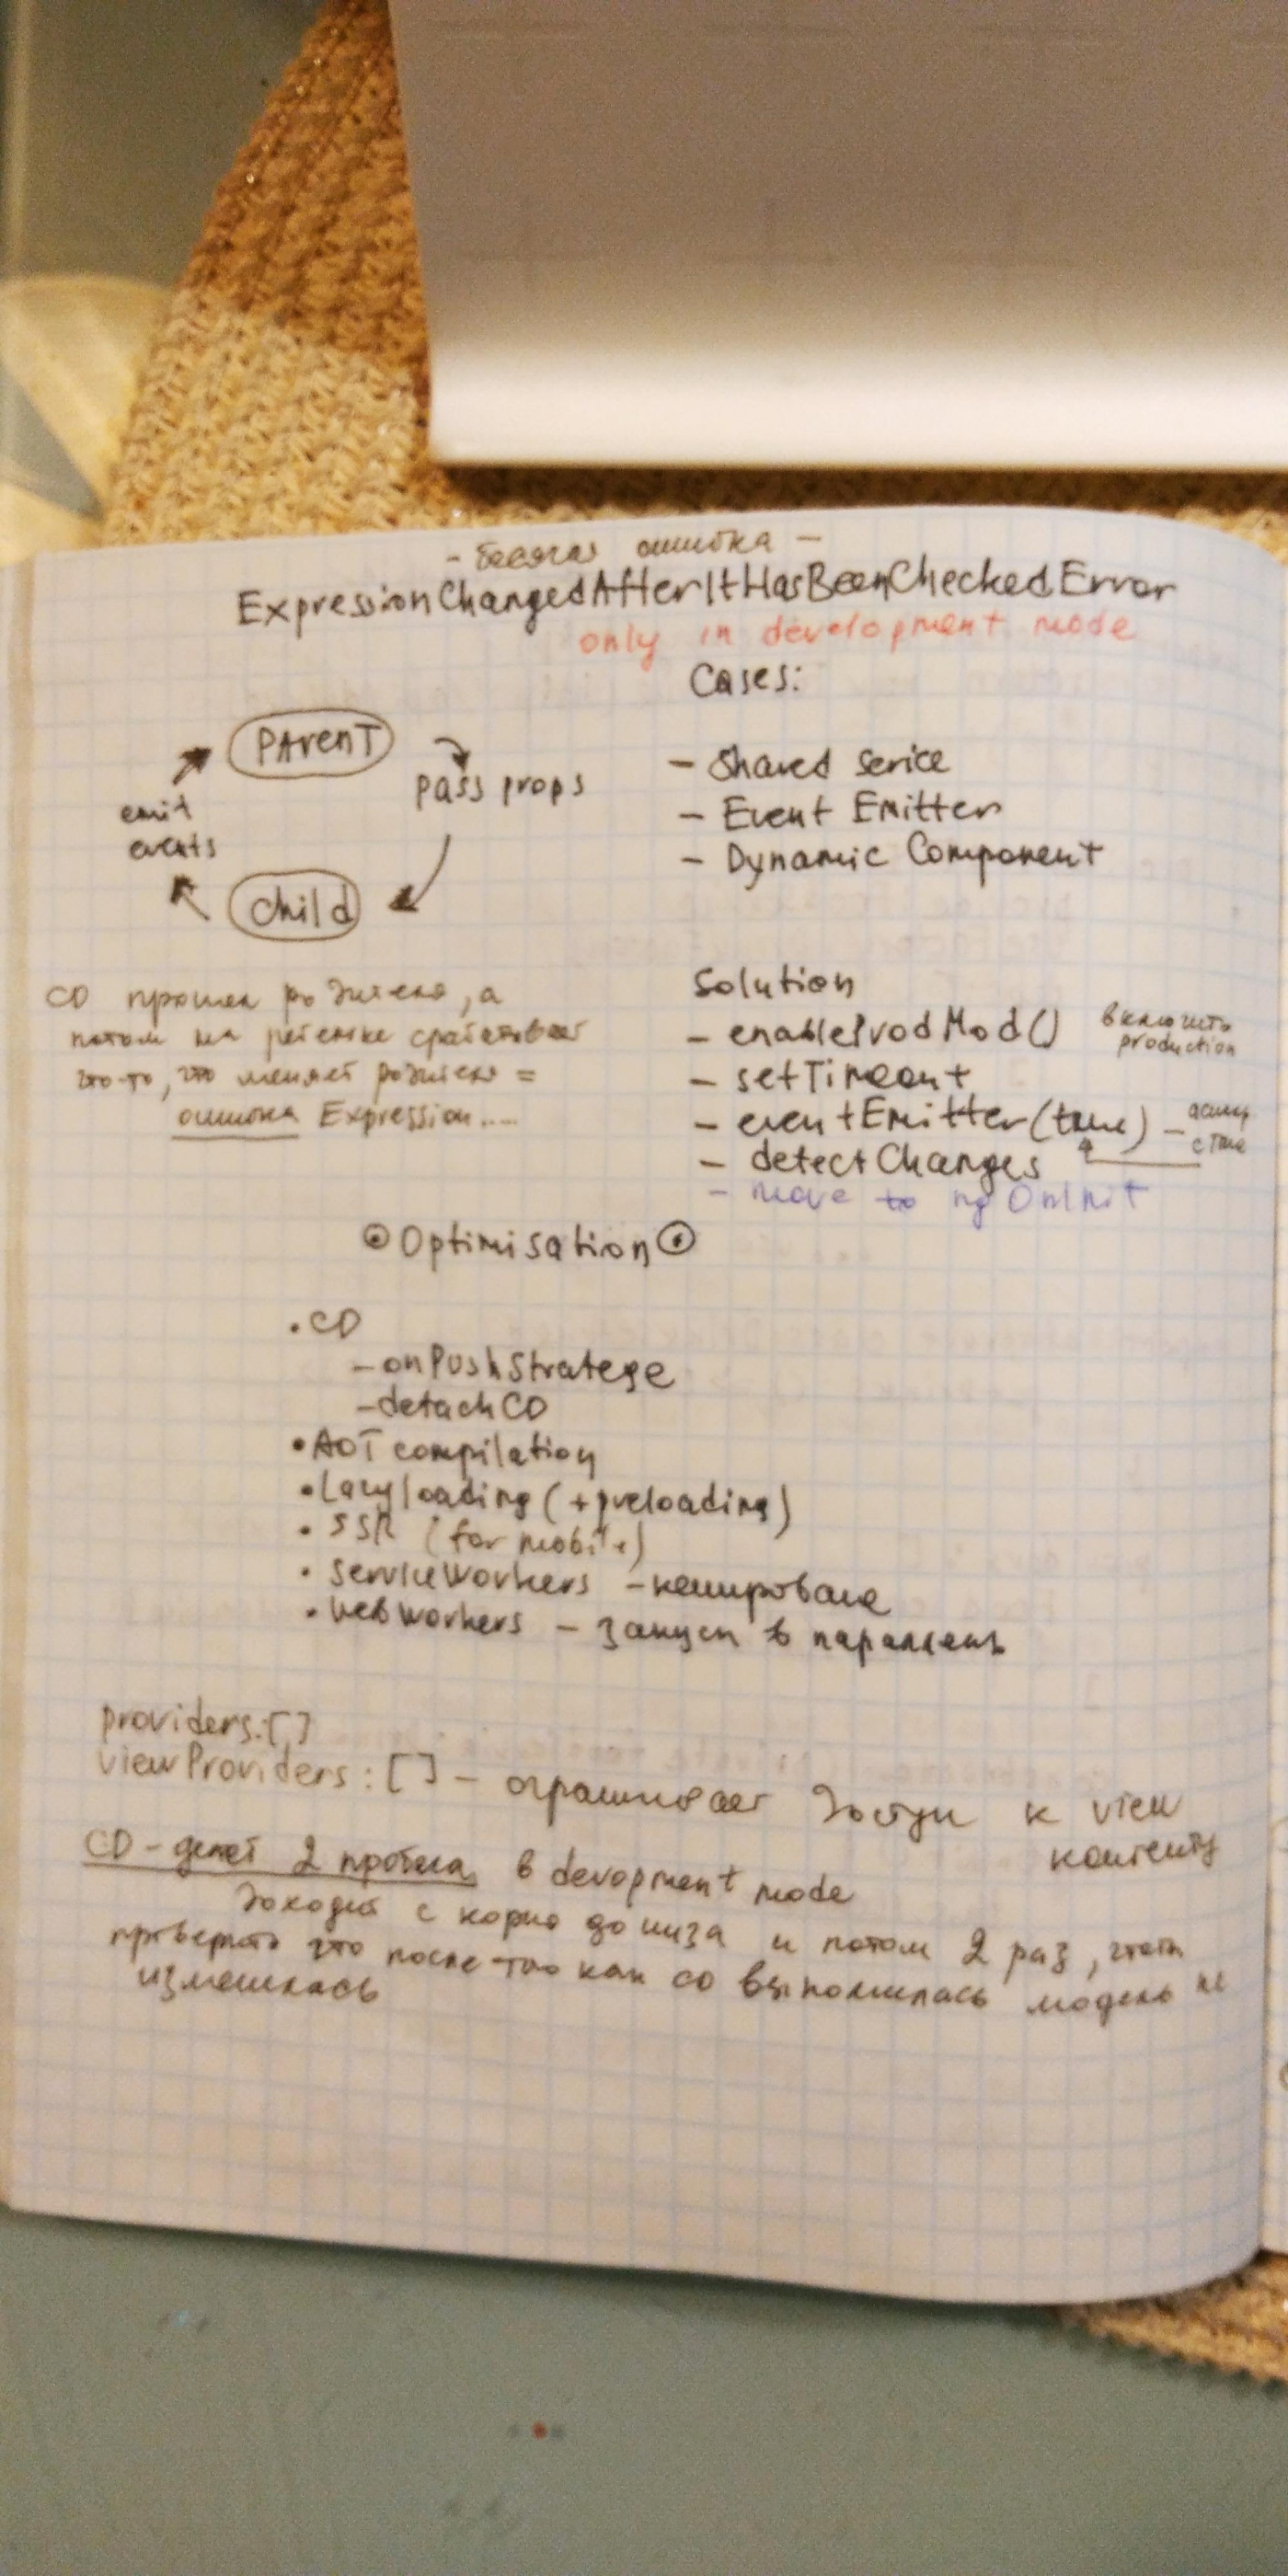 - бесячая ошибка -
ExpressionChangedAfterItHasBeenCheckedError
only in development mode
Cases:
PArenT
pass props
emit
events
child
- Shared serice
- Event Emitter
- Dynamic Component
CD прошел родителя, а
потом на ребенке срабатывает
что-то, что меняет родителя =
ошибка Expression....
Solution
- enableProdMod() включить
production
- setTimeout
- eventEmitter(true) -
- detectChanges
- move to ngOnInit
Optimisation
• CD
- onPushStratege
- detach CD
• AOT compilation
• Lazy loading (+preloading)
• SSR (for mobile)
• serviceWorkers - кеширование
• WebWorkers - запуск в паралель
providers:[]
viewProviders:[] - ограничивает доступ к view
контенту
CD - делает 2 пробега в devopment mode
Доходит с корня до низа и потом 2 раз, чтоб
проверить что после того как CD выполнилась модель не
изменилась